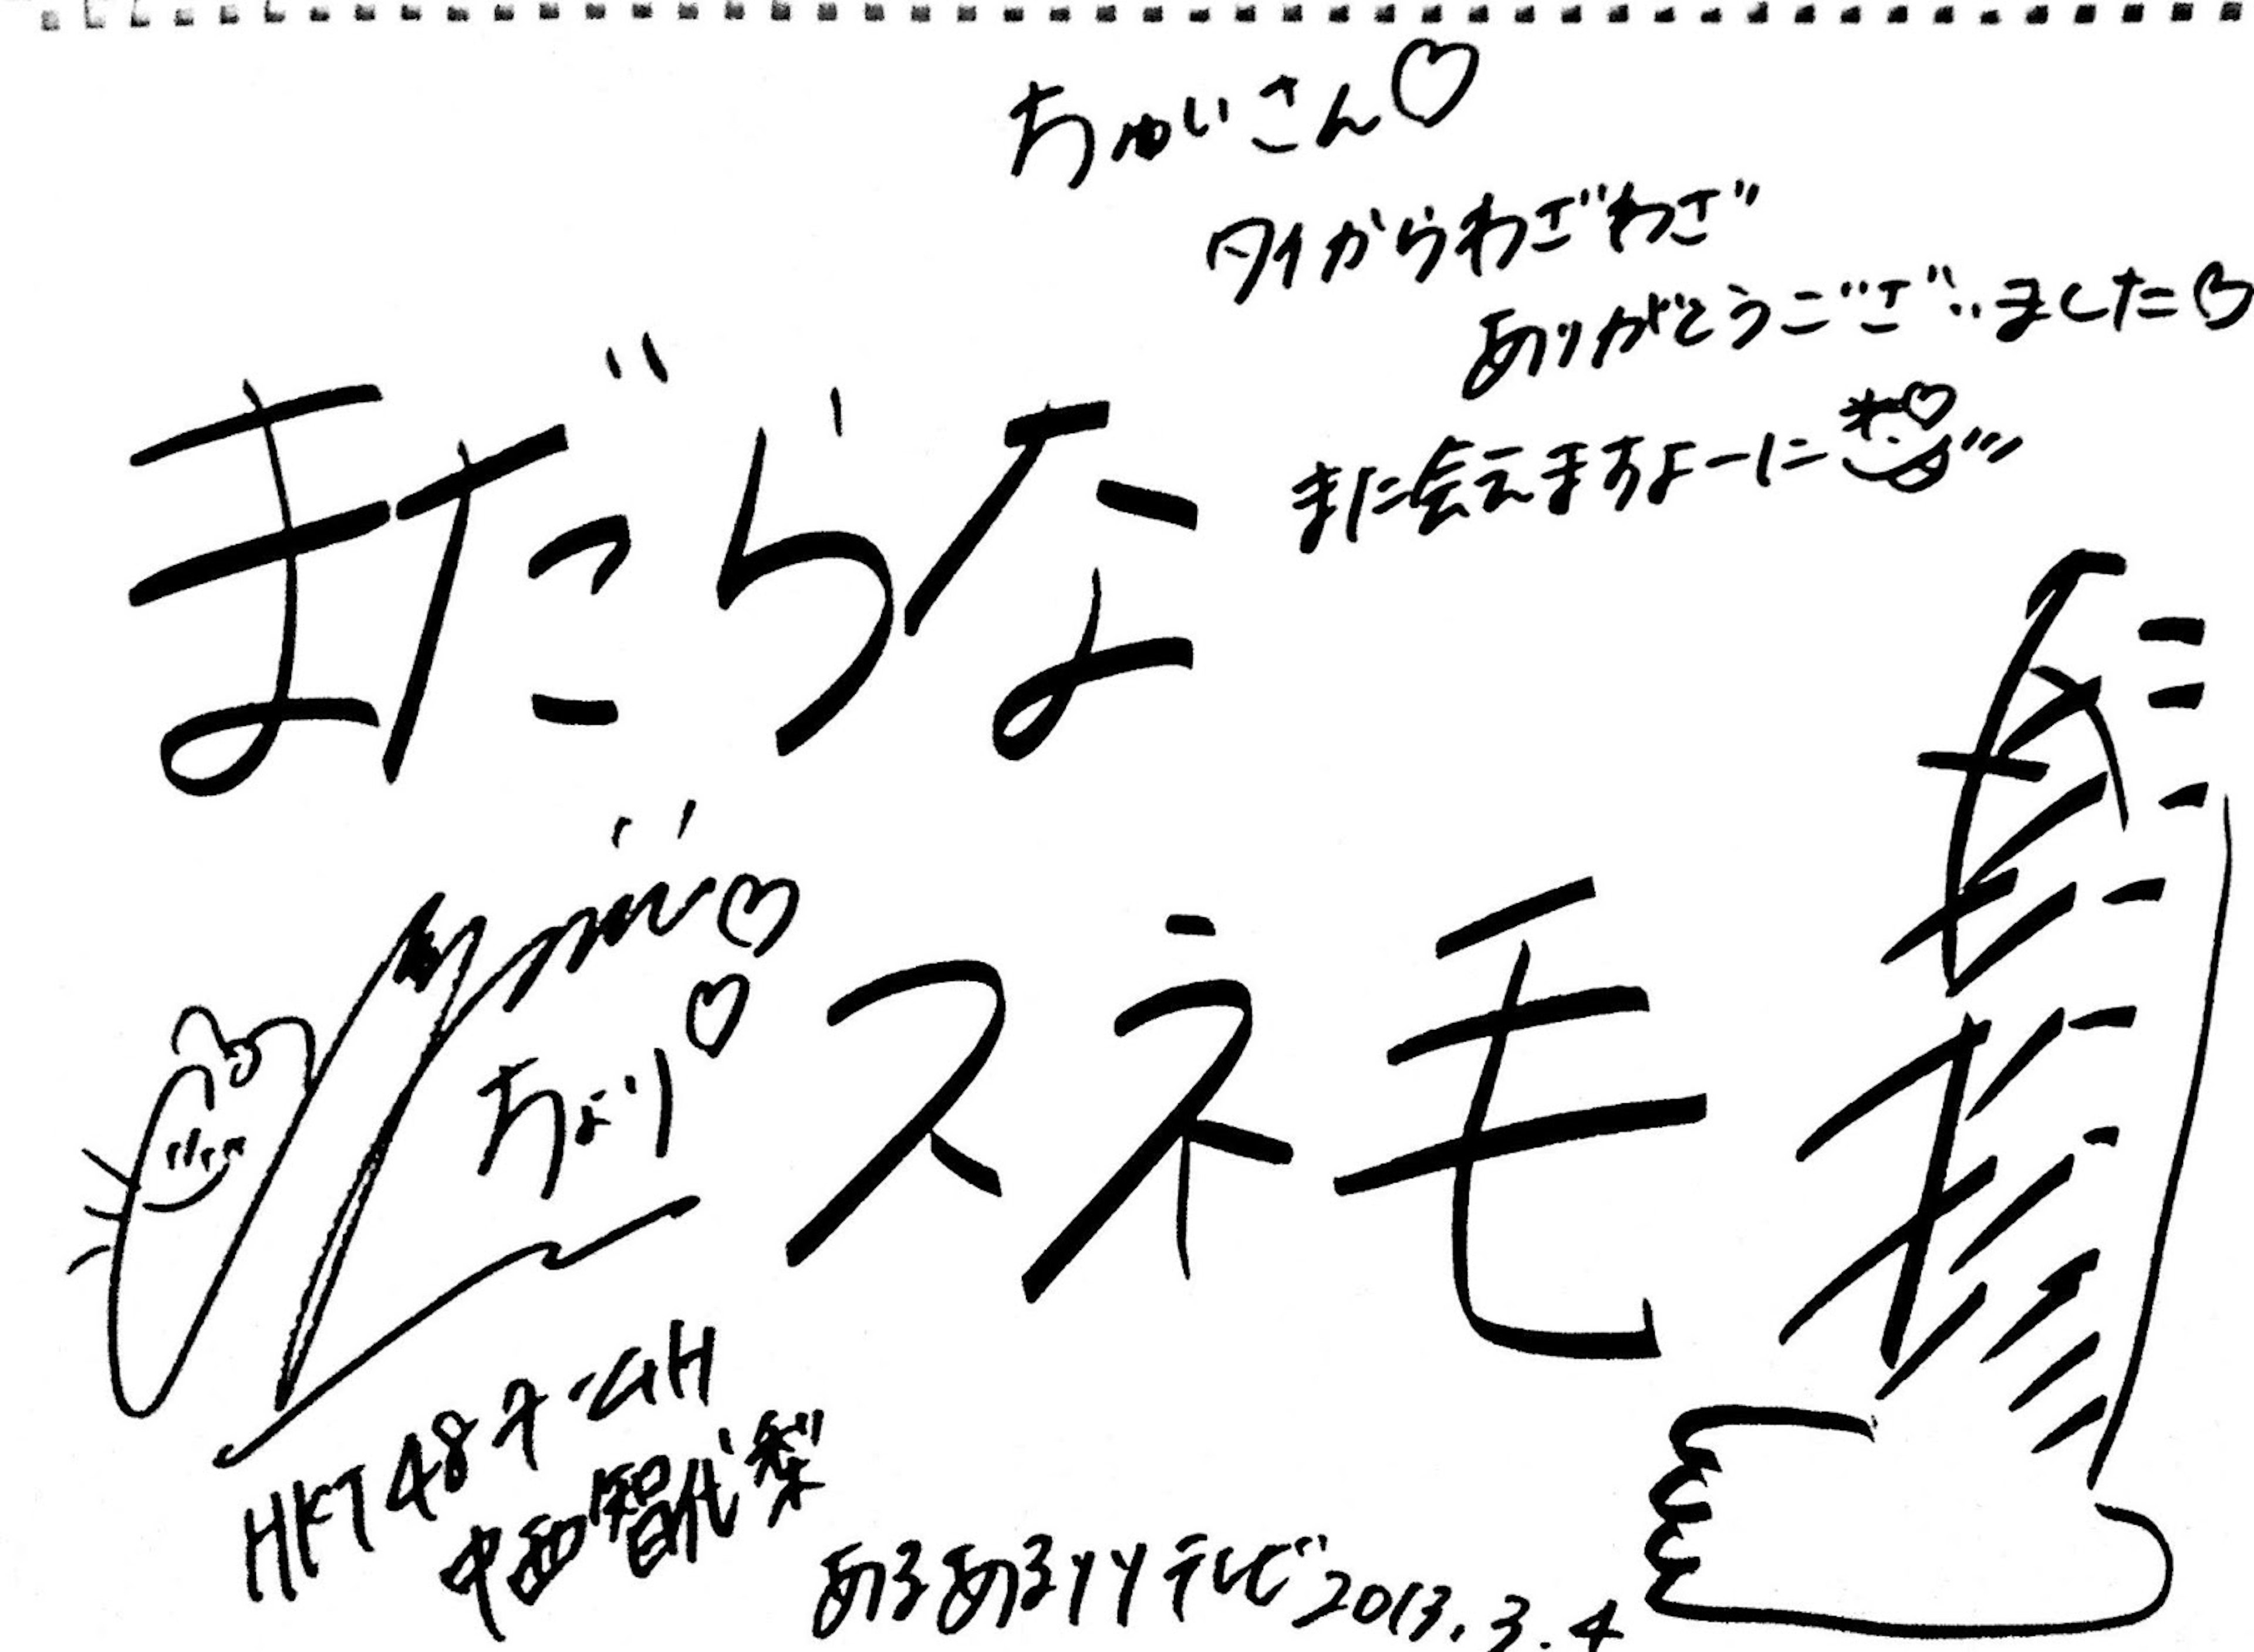 ちゅいさん♡
タイからわざわざ
ありがとうございました♡
また会えますよーに
まだらな
スネ毛
ちょり♡
HKT48チームH
中西智代梨
あるあるYYテレビ 2013.3.4